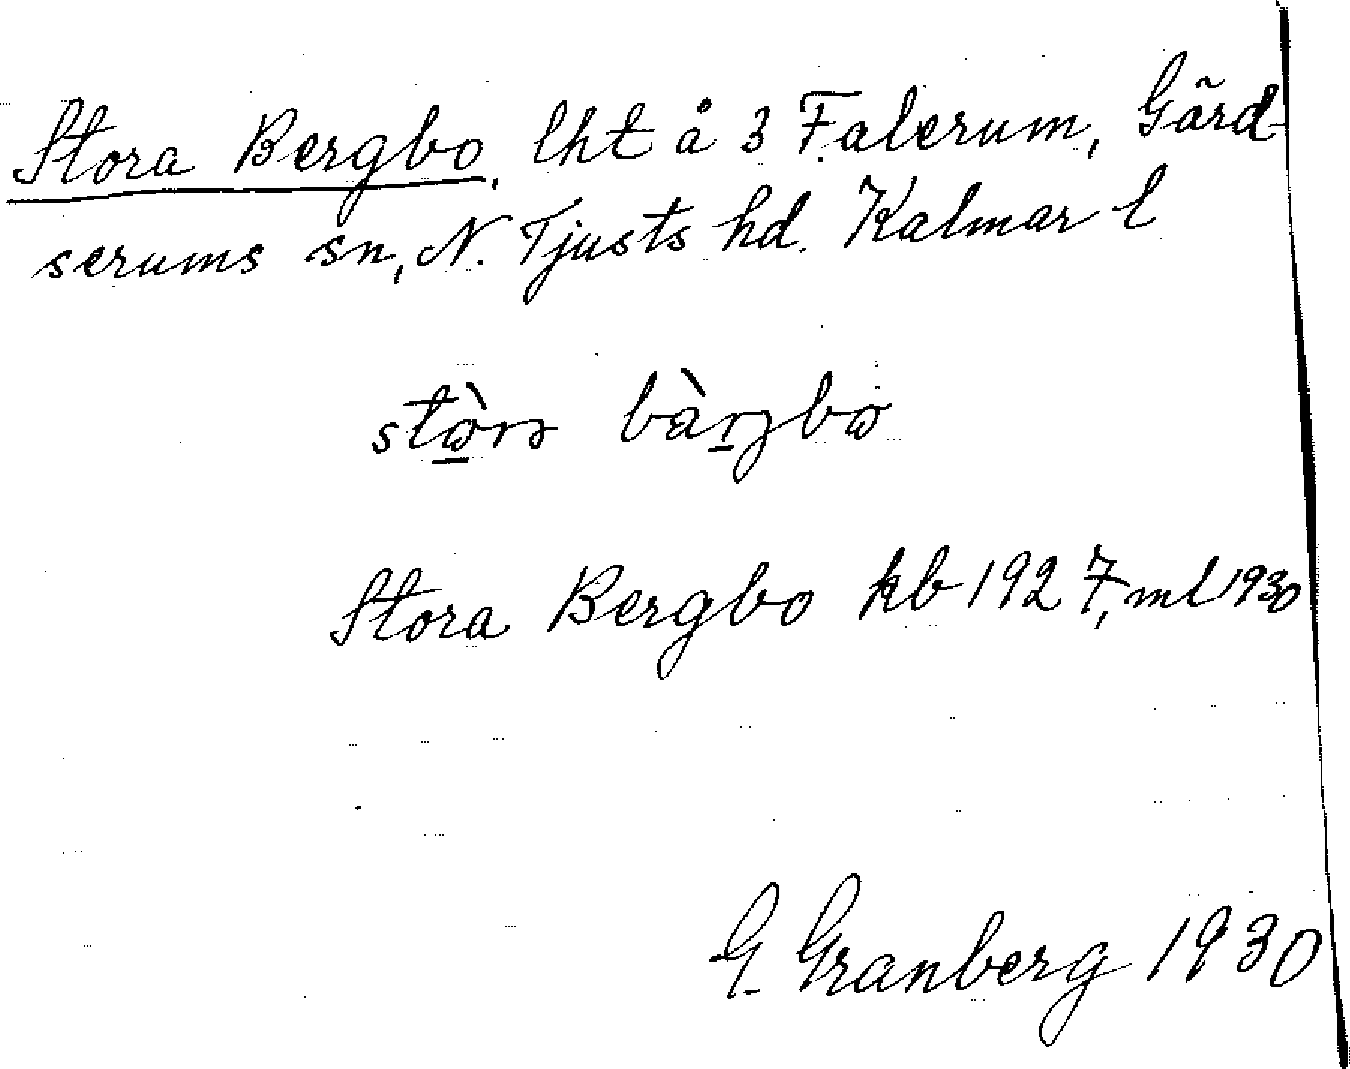 Stora Bergbo, lht å 3 Falerum, Gärd-
serums sn, N. Tjusts hd. Kalmar l
Stora Bergbo kb 1927, ml 1930
G. Granberg 1930